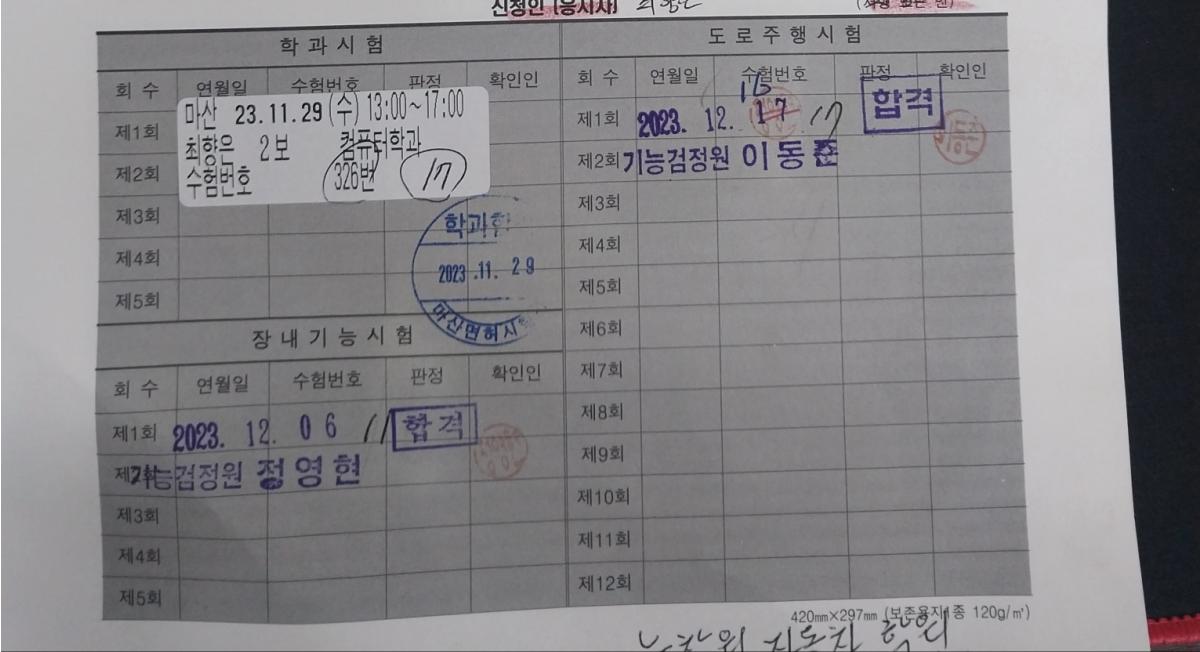 신청인 (응시자)
학 과 시 험
회 수 연월일 수험번호 판정 확인인
마산 23.11.29 (수) 13:00~17:00
제1회
최향은 2보 컴퓨터학과
제2회
수험번호 326번 17
제3회
학과
제4회
2023.11.29
제5회
마산면허시
장 내 기 능 시 험
회 수 연월일 수험번호 판정 확인인
제1회 2023. 12. 06 11 합격
기능검정원 정영현
제3회
제4회
제5회
도 로 주 행 시 험
회 수 연월일 수험번호 판정 확인인
16
제1회 2023. 12. 17 17 합격
제2회 기능검정원 이동준
제3회
제4회
제5회
제6회
제7회
제8회
제9회
제10회
제11회
제12회
420㎜×297㎜ (보존용지1종 120g/㎡)
자동차